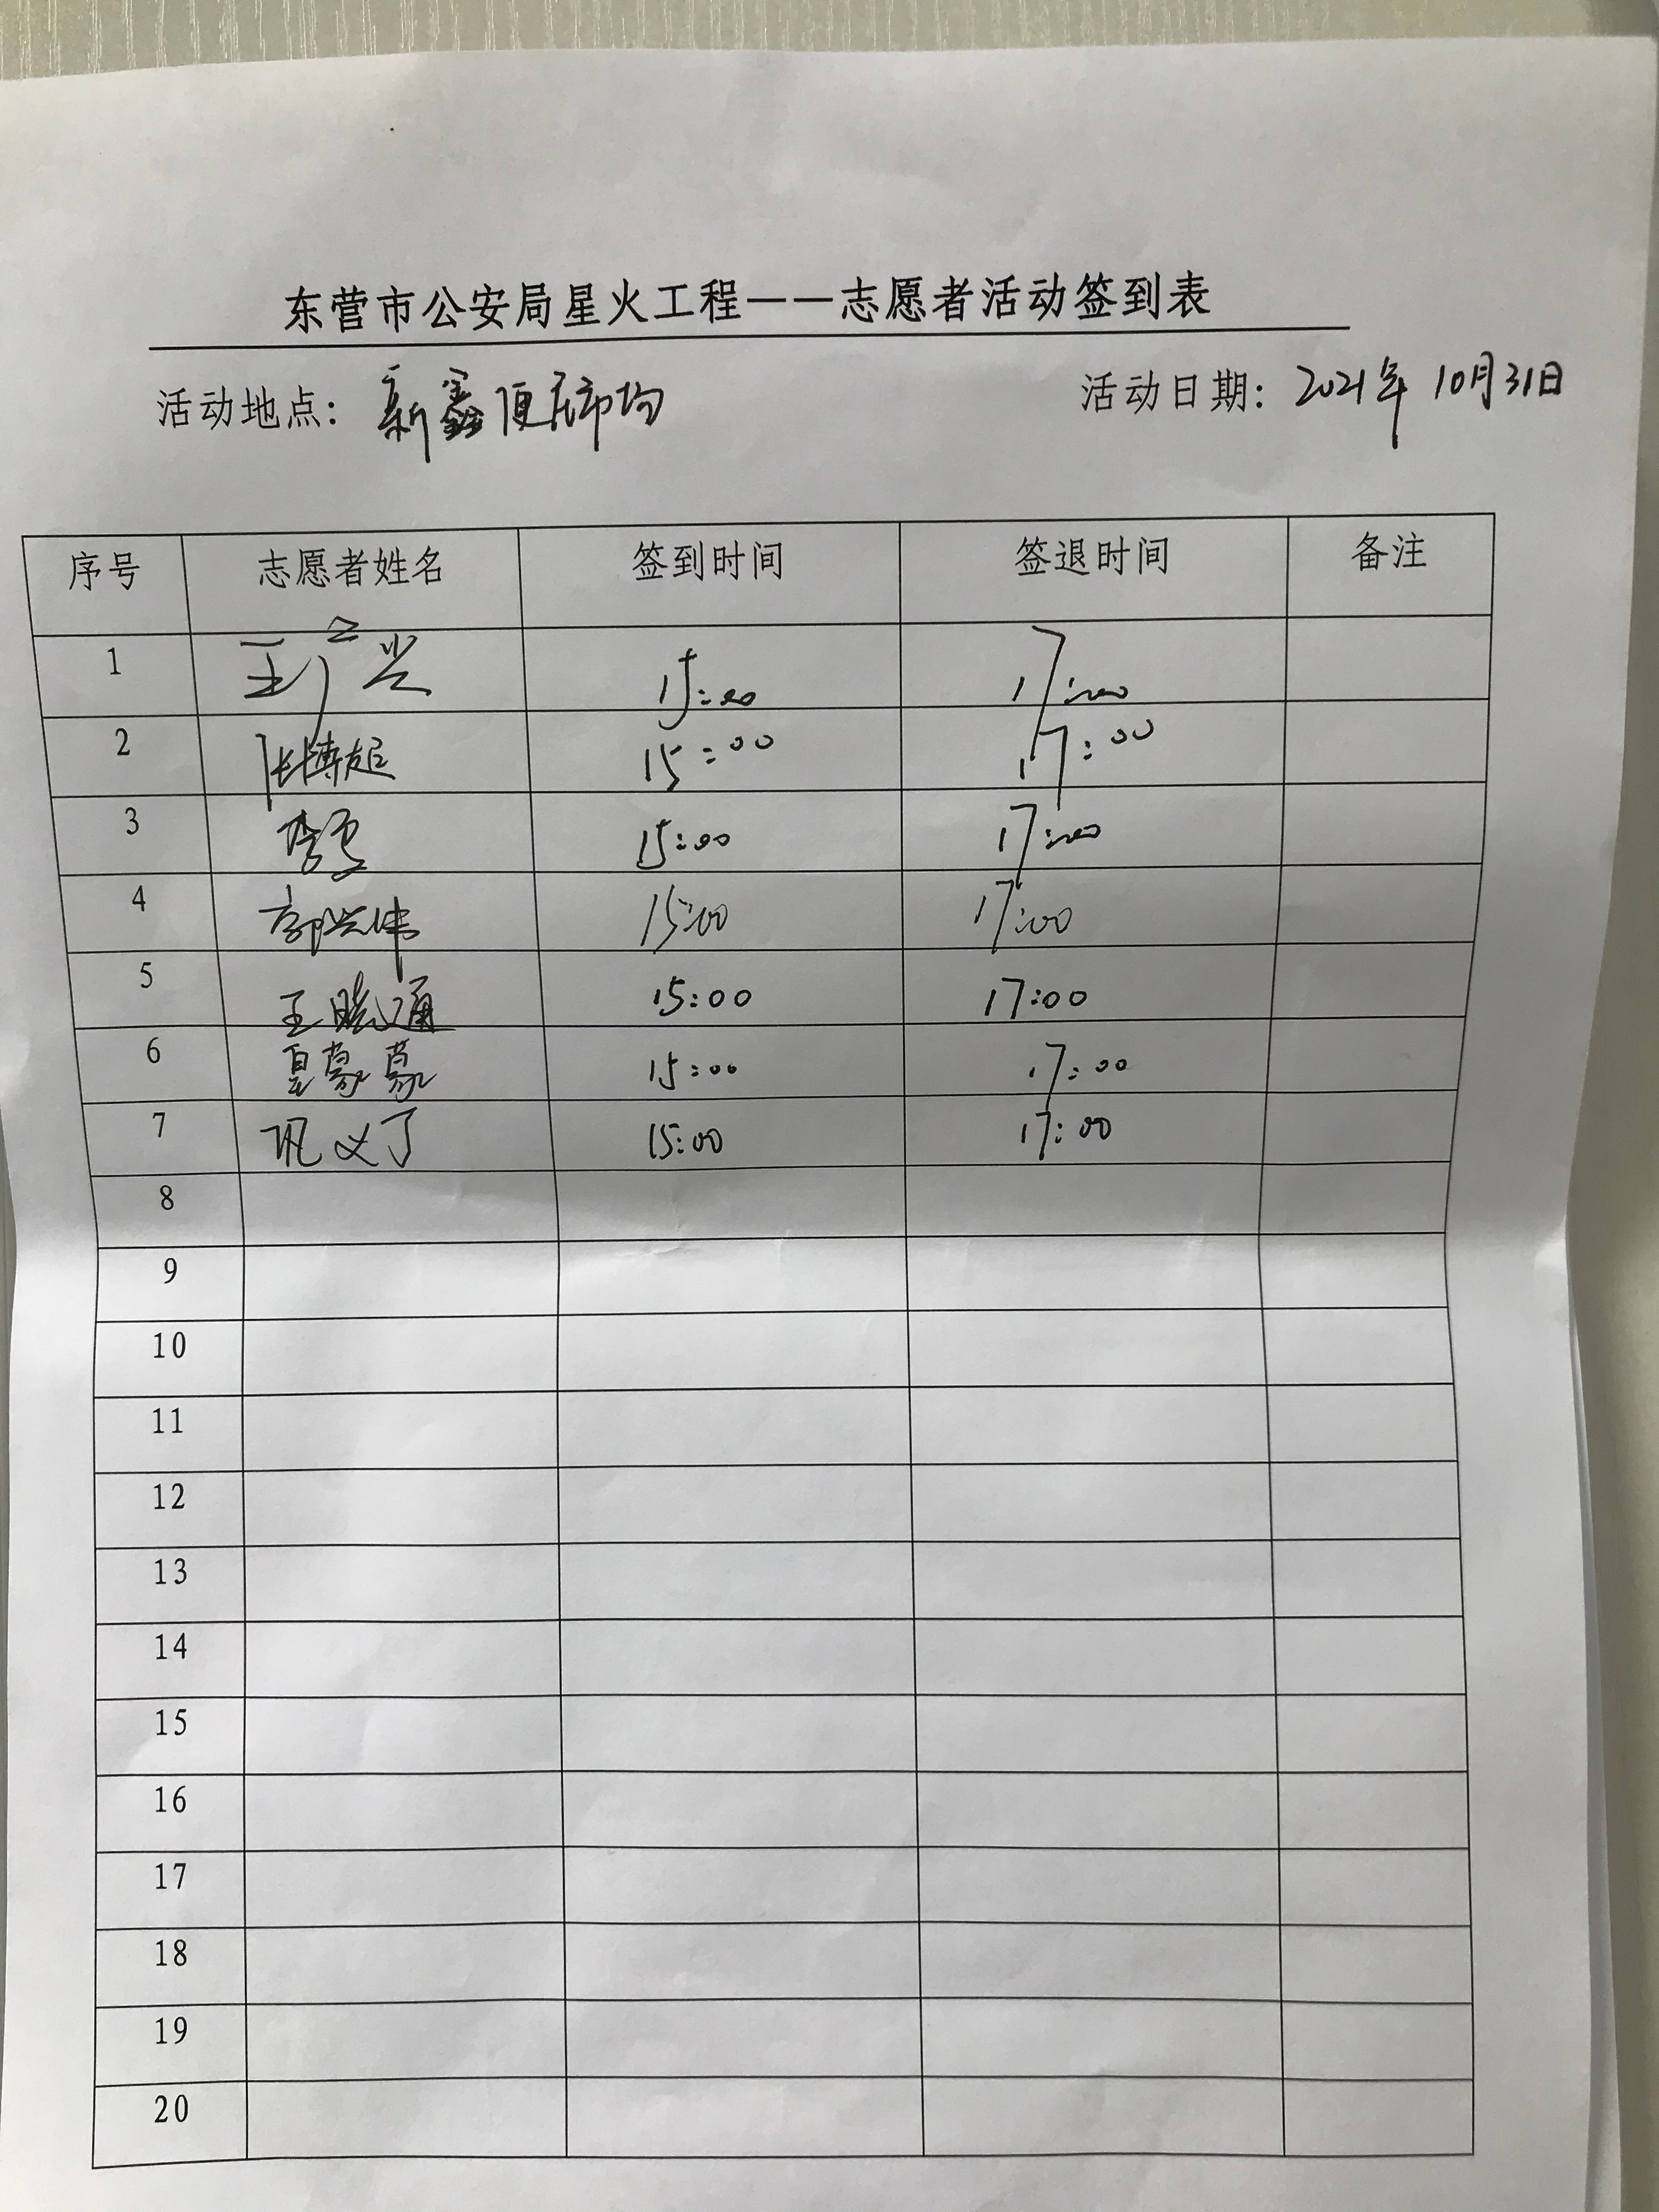 东营市公安局星火工程——志愿者活动签到表
活动地点：新鑫便民市场 活动日期：2021年10月31日
序号 志愿者姓名 签到时间 签退时间 备注
1 王广兴 15:00 17:00
2 张博超 15:00 17:00
3 15:00 17:00
4 郭兴伟 15:00 17:00
5 王晓通 15:00 17:00
6 夏蒙蒙 15:00 17:00
7 巩义丁 15:00 17:00
8
9
10
11
12
13
14
15
16
17
18
19
20